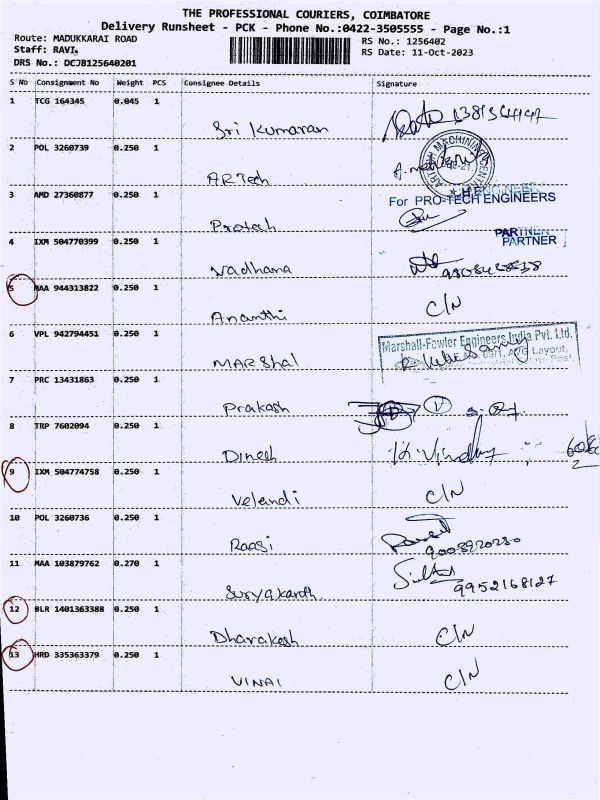 THE PROFESSIONAL COURIERS, COIMBATORE
Delivery Runsheet - PCK - Phone No.:0422-3505555 - Page No.:1
Route: MADUKKARAI ROAD
RS No.: 1256402
Staff: RAVI.
RS Date: 11-Oct-2023
DRS No.: DCJB125640201
S No Consignment No Weight PCS Consignee Details Signature
1 TCG 164345 0.045 1
Sri Kumaran
2 POL 3260739 0.250 1
ARTech
3 AMD 27360877 0.250 1
For PRO-TECH ENGINEERS
Protech
PARTNER
4 IXM 504770399 0.250 1
PARTNER
Vadhana
5 MAA 944313822 0.250 1
C/N
Ananthi
6 VPL 942794451 0.250 1
Marshall-Fowler Engineers India Pvt. Ltd.
Layout,
MARShal
7 PRC 13431863 0.250 1
Prakash
8 TRP 7602094 0.250 1
Dinesh
9 IXM 504774758 0.250 1
C/N
Velandi
10 POL 3260736 0.250 1
Raasi
11 MAA 103879762 0.270 1
9952168127
Suryakanth.
12 BLR 1401363388 0.250 1
Dharakesh
C/N
13 HRD 335363379 0.250 1
VINAI
C/N